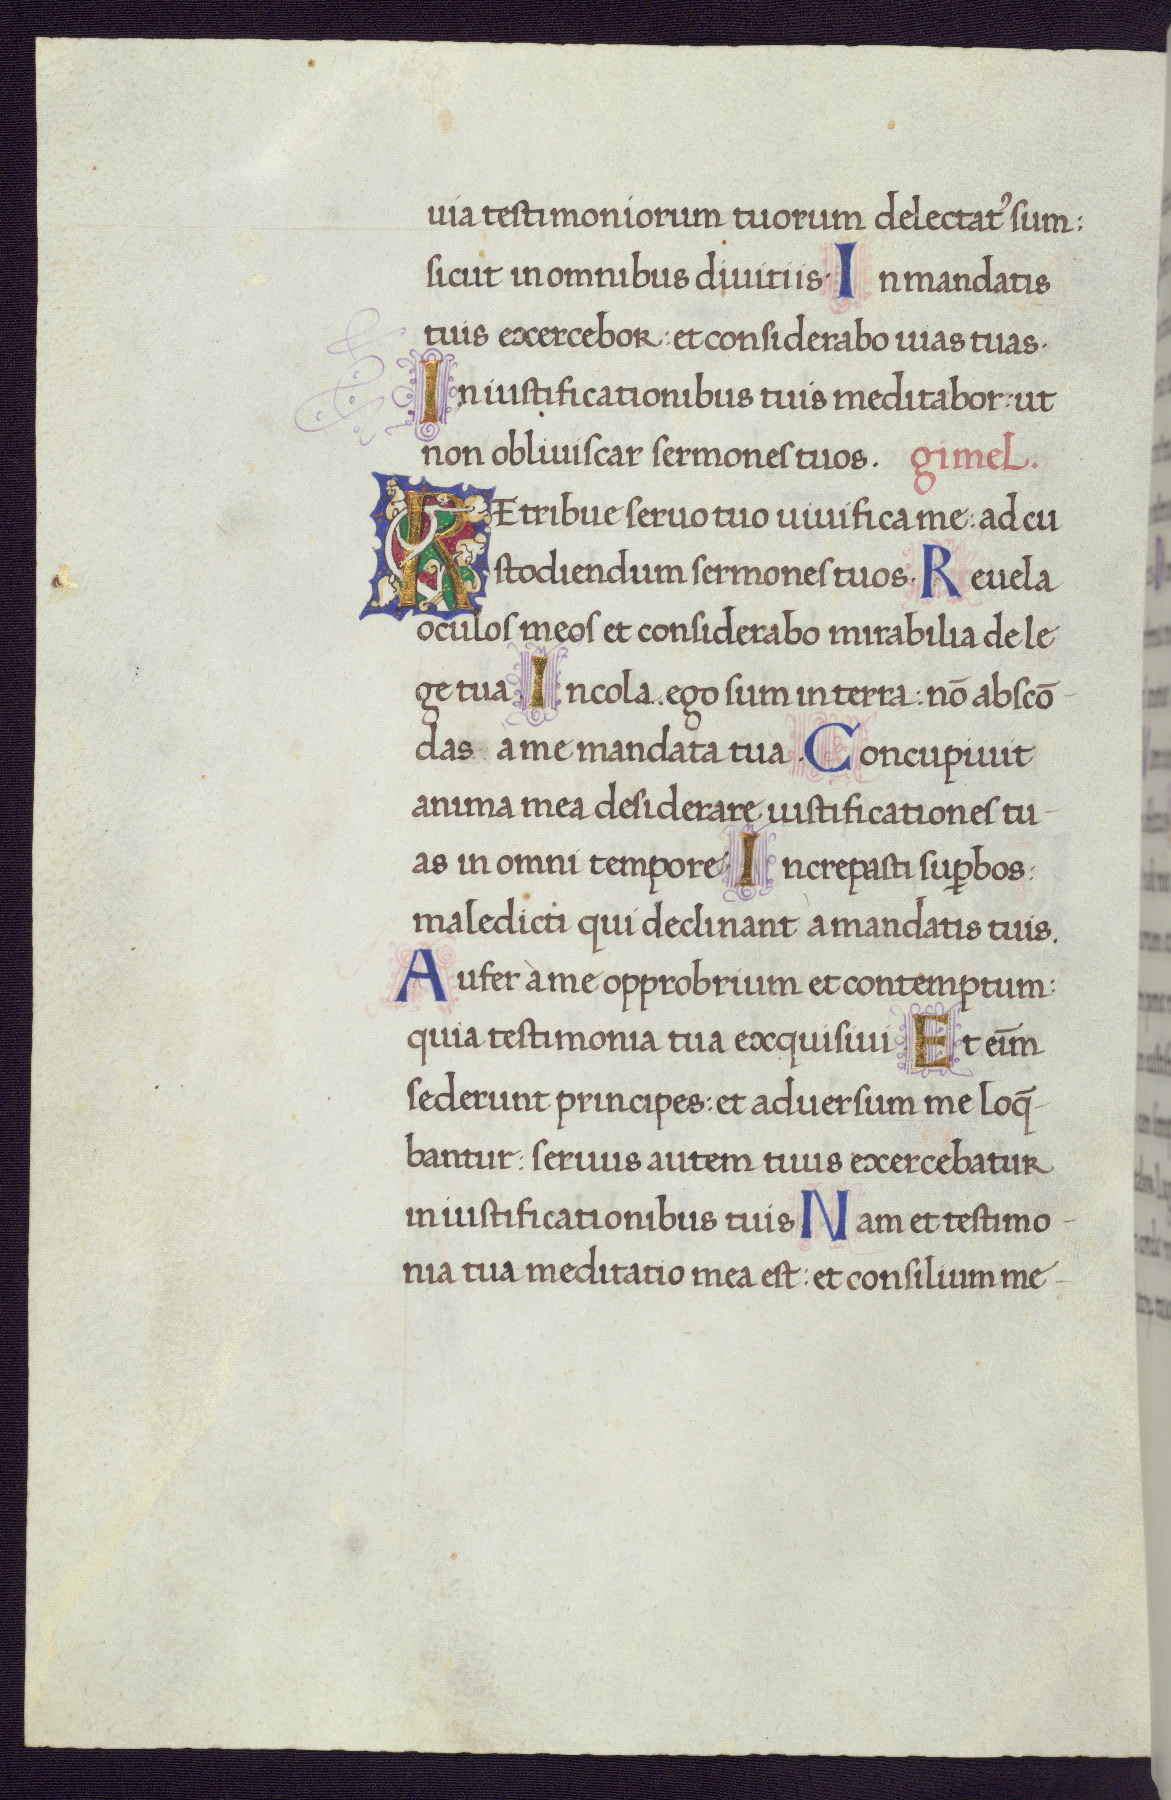 uia testimoniorum tuorum delectatꝰ sum:
sicut in omnibus diuitiis. In mandatis
tuis exercebor: et considerabo uias tuas.
In iustificationibus tuis meditabor: ut
non obliuiscar sermones tuos. gimel.
REtribue seruo tuo uiuifica me: ad cu
stodiendum sermones tuos. Reuela
oculos meos et considerabo mirabilia de le
ge tua. Incola ego sum in terra: nō abscō-
das a me mandata tua. Concupiuit
anima mea desiderare iustificationes tu-
as in omni tempore. Increpasti suꝑbos:
maledicti qui declinant à mandatis tuis.
Aufer à me opprobrium et contemptum:
quia testimonia tua exquisiui. Et eim̄
sederunt principes: et aduersum me loq̄-
bantur: seruus autem tuus exercebatur
in iustificationibus tuis Nam et testimo-
nia tua meditatio mea est: et consilium me-